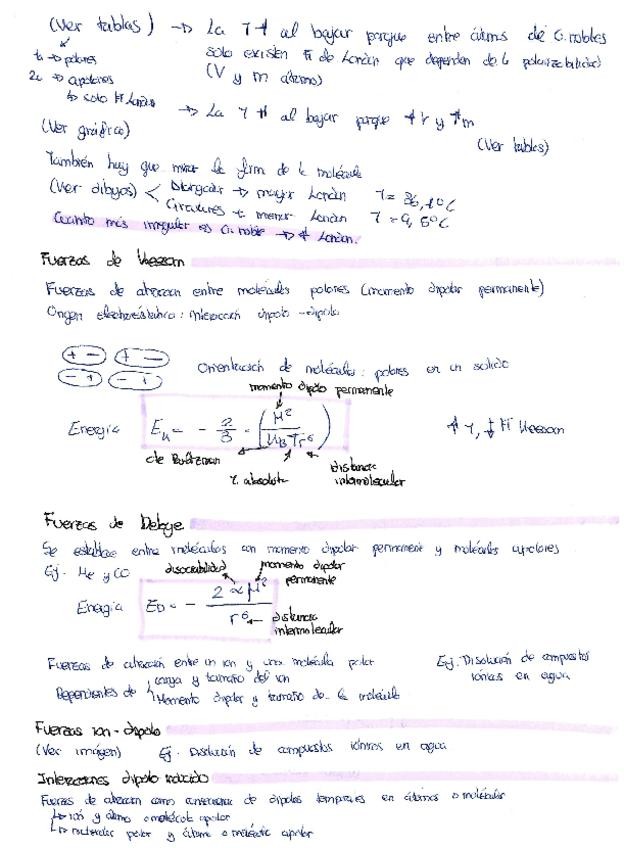 (Ver tablas) → La T ↑ al bajar porque entre átomos de G. nobles
1a → polares solo existen F de London que dependen de la polarizabilidad
2a → apolares (V y m átomo)
↳ solo F London → La T ↑ al bajar porque ↑ r y ↑ m
(Ver gráfica) (Ver tablas)
También hay que mirar la forma de la molécula
(Ver dibujos) < Alargadas → mayor London T = 36,1ºC
Circulares → menor London T = 9,5ºC
Cuanto más irregular es G. noble → ↑ London.
Fuerzas de Keesom
Fuerzas de atracción entre moléculas polares (momento dipolar permanente)
Origen electroestático: interacción dipolo - dipolo
+ - + -
- + - +
Orientación de moléculas polares en un sólido
momento dipolo permanente
Energía E_k = - 2/3 · (μ² / K_B T r⁶) ↑ T, ↓ F Keesom
cte Boltzman
T. absoluta
distancia intermolecular
Fuerzas de Debye
Se establece entre moléculas con momento dipolar permanente y moléculas apolares
Ej. He y CO momento dipolar permanente
Energía E_D = - 2 α μ² / r⁶
distancia intermolecular
Fuerzas de atracción entre un ion y una molécula polar Ej. Disolución de compuestos
iónicos en agua
Dependientes de carga y tamaño del ion
Momento dipolar y tamaño de la molécula
Fuerzas ion-dipolo
(Ver imagen) Ej. Disolución de compuestos iónicos en agua
Interacciones dipolo inducido
Fuerzas de atracción como consecuencia de dipolos temporales en átomos o moléculas
↳ ión y átomo o molécula apolar
↳ molécula polar y átomo o molécula apolar